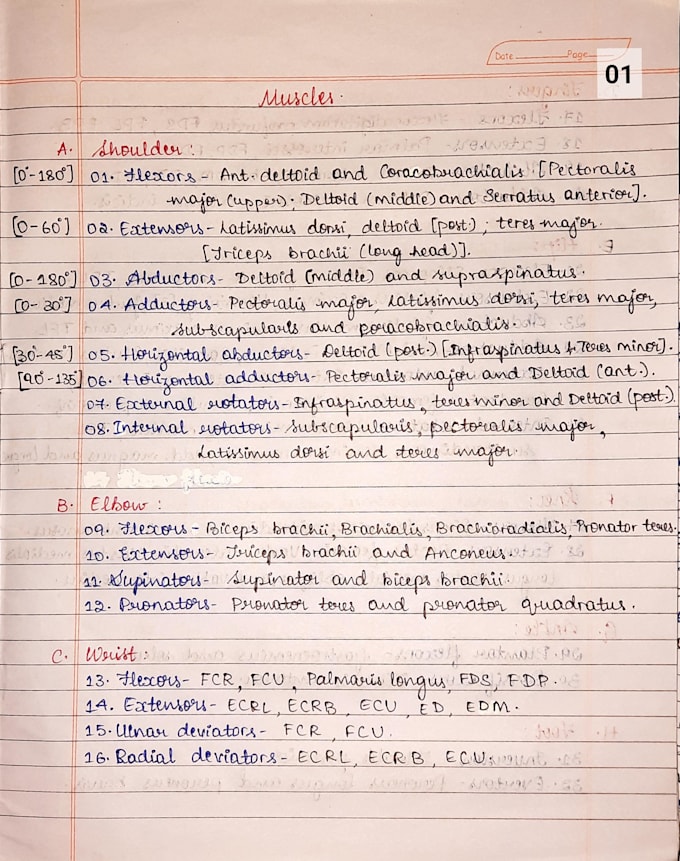 Date Page
01
Muscles.
A. Shoulder:
[0°-180°] 01. Flexors- Ant. deltoid and Coracobrachialis [Pectoralis
major (upper); Deltoid (middle) and Serratus anterior].
[0-60°] 02. Extensors- Latissimus dorsi, deltoid [post.) ; teres major.
[Triceps brachii (long head)].
[0-180°] 03. Abductors- Deltoid (middle) and supraspinatus.
[0-30°] 04. Adductors- Pectoralis major, latissimus dorsi, teres major,
subscapularis and coracobrachialis.
[30°-45°] 05. Horizontal abductors- Deltoid (post.) [Infraspinatus & Teres minor].
[90°-135] 06. Horizontal adductors- Pectoralis major and Deltoid (ant.).
07. External rotators- Infraspinatus, teres minor and Deltoid (post.)
08. Internal rotators- Subscapularis, pectoralis major,
Latissimus dorsi and teres major.
B. Elbow:
09. Flexors- Biceps brachii, Brachialis, Brachioradialis, Pronator teres.
10. Extensors- Triceps brachii and Anconeus.
11. Supinators- Supinator and biceps brachii.
12. Pronators- Pronator teres and pronator quadratus.
C. Wrist:
13. Flexors- FCR, FCU, Palmaris longus, FDS, FDP.
14. Extensors- ECRL, ECRB, ECU, ED, EDM.
15. Ulnar deviators- FCR, FCU.
16. Radial deviators- ECRL, ECRB, ECU.